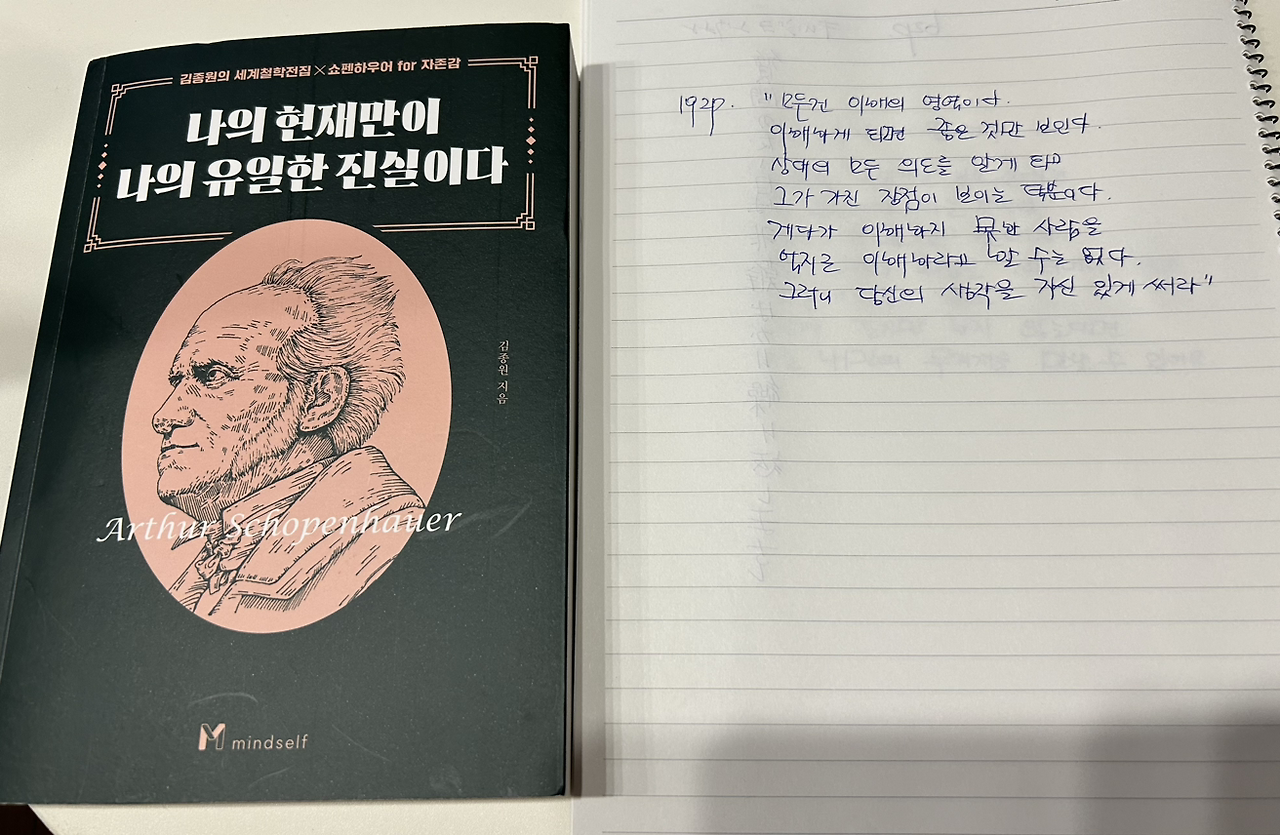 김종원의 세계철학전집×쇼펜하우어 for 자존감
나의 현재만이
나의 유일한 진실이다
김종원 지음
Arthur Schopenhauer
M mindself
192p. "모든건 이해의 영역이다.
이해하게 되면 좋은 것만 보인다.
상대의 모든 의도를 알게 되고
그가 가진 장점이 보이는 덕분이다.
게다가 이해하지 못한 사람을
억지로 이해하라고 할 수는 없다.
그러니 당신의 생각을 자신 있게 써라"